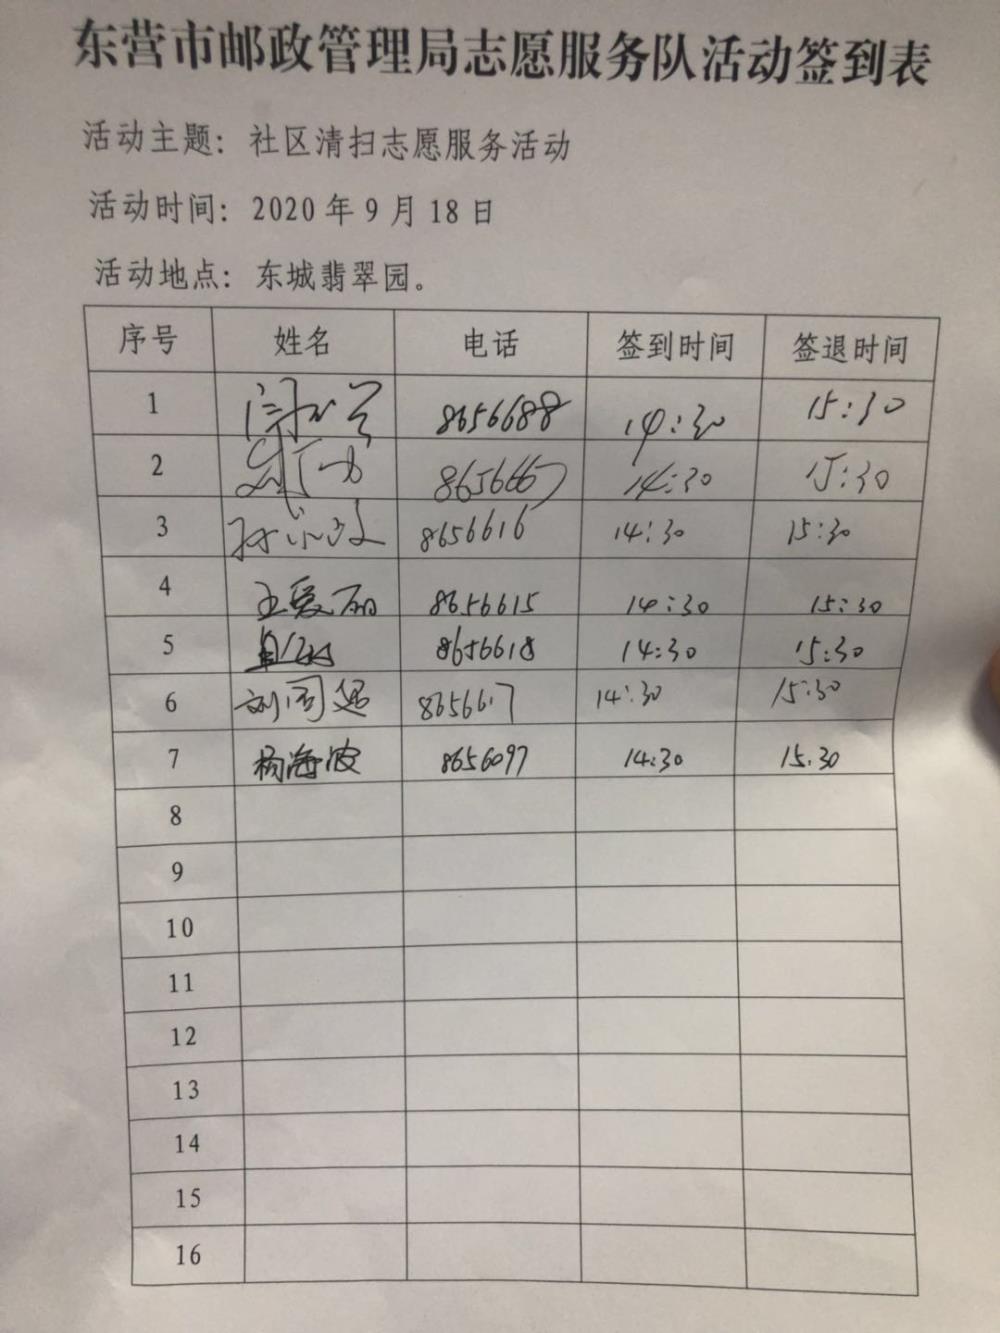 东营市邮政管理局志愿服务队活动签到表
活动主题：社区清扫志愿服务活动
活动时间：2020年9月18日
活动地点：东城翡翠园。
序号 姓名 电话 签到时间 签退时间
1 8656688 14:30 15:30
2 8656667 14:30 15:30
3 8656616 14:30 15:30
4 王爱丽 8656615 14:30 15:30
5 8656618 14:30 15:30
6 8656617 14:30 15:30
7 杨海波 8656097 14:30 15:30
8
9
10
11
12
13
14
15
16